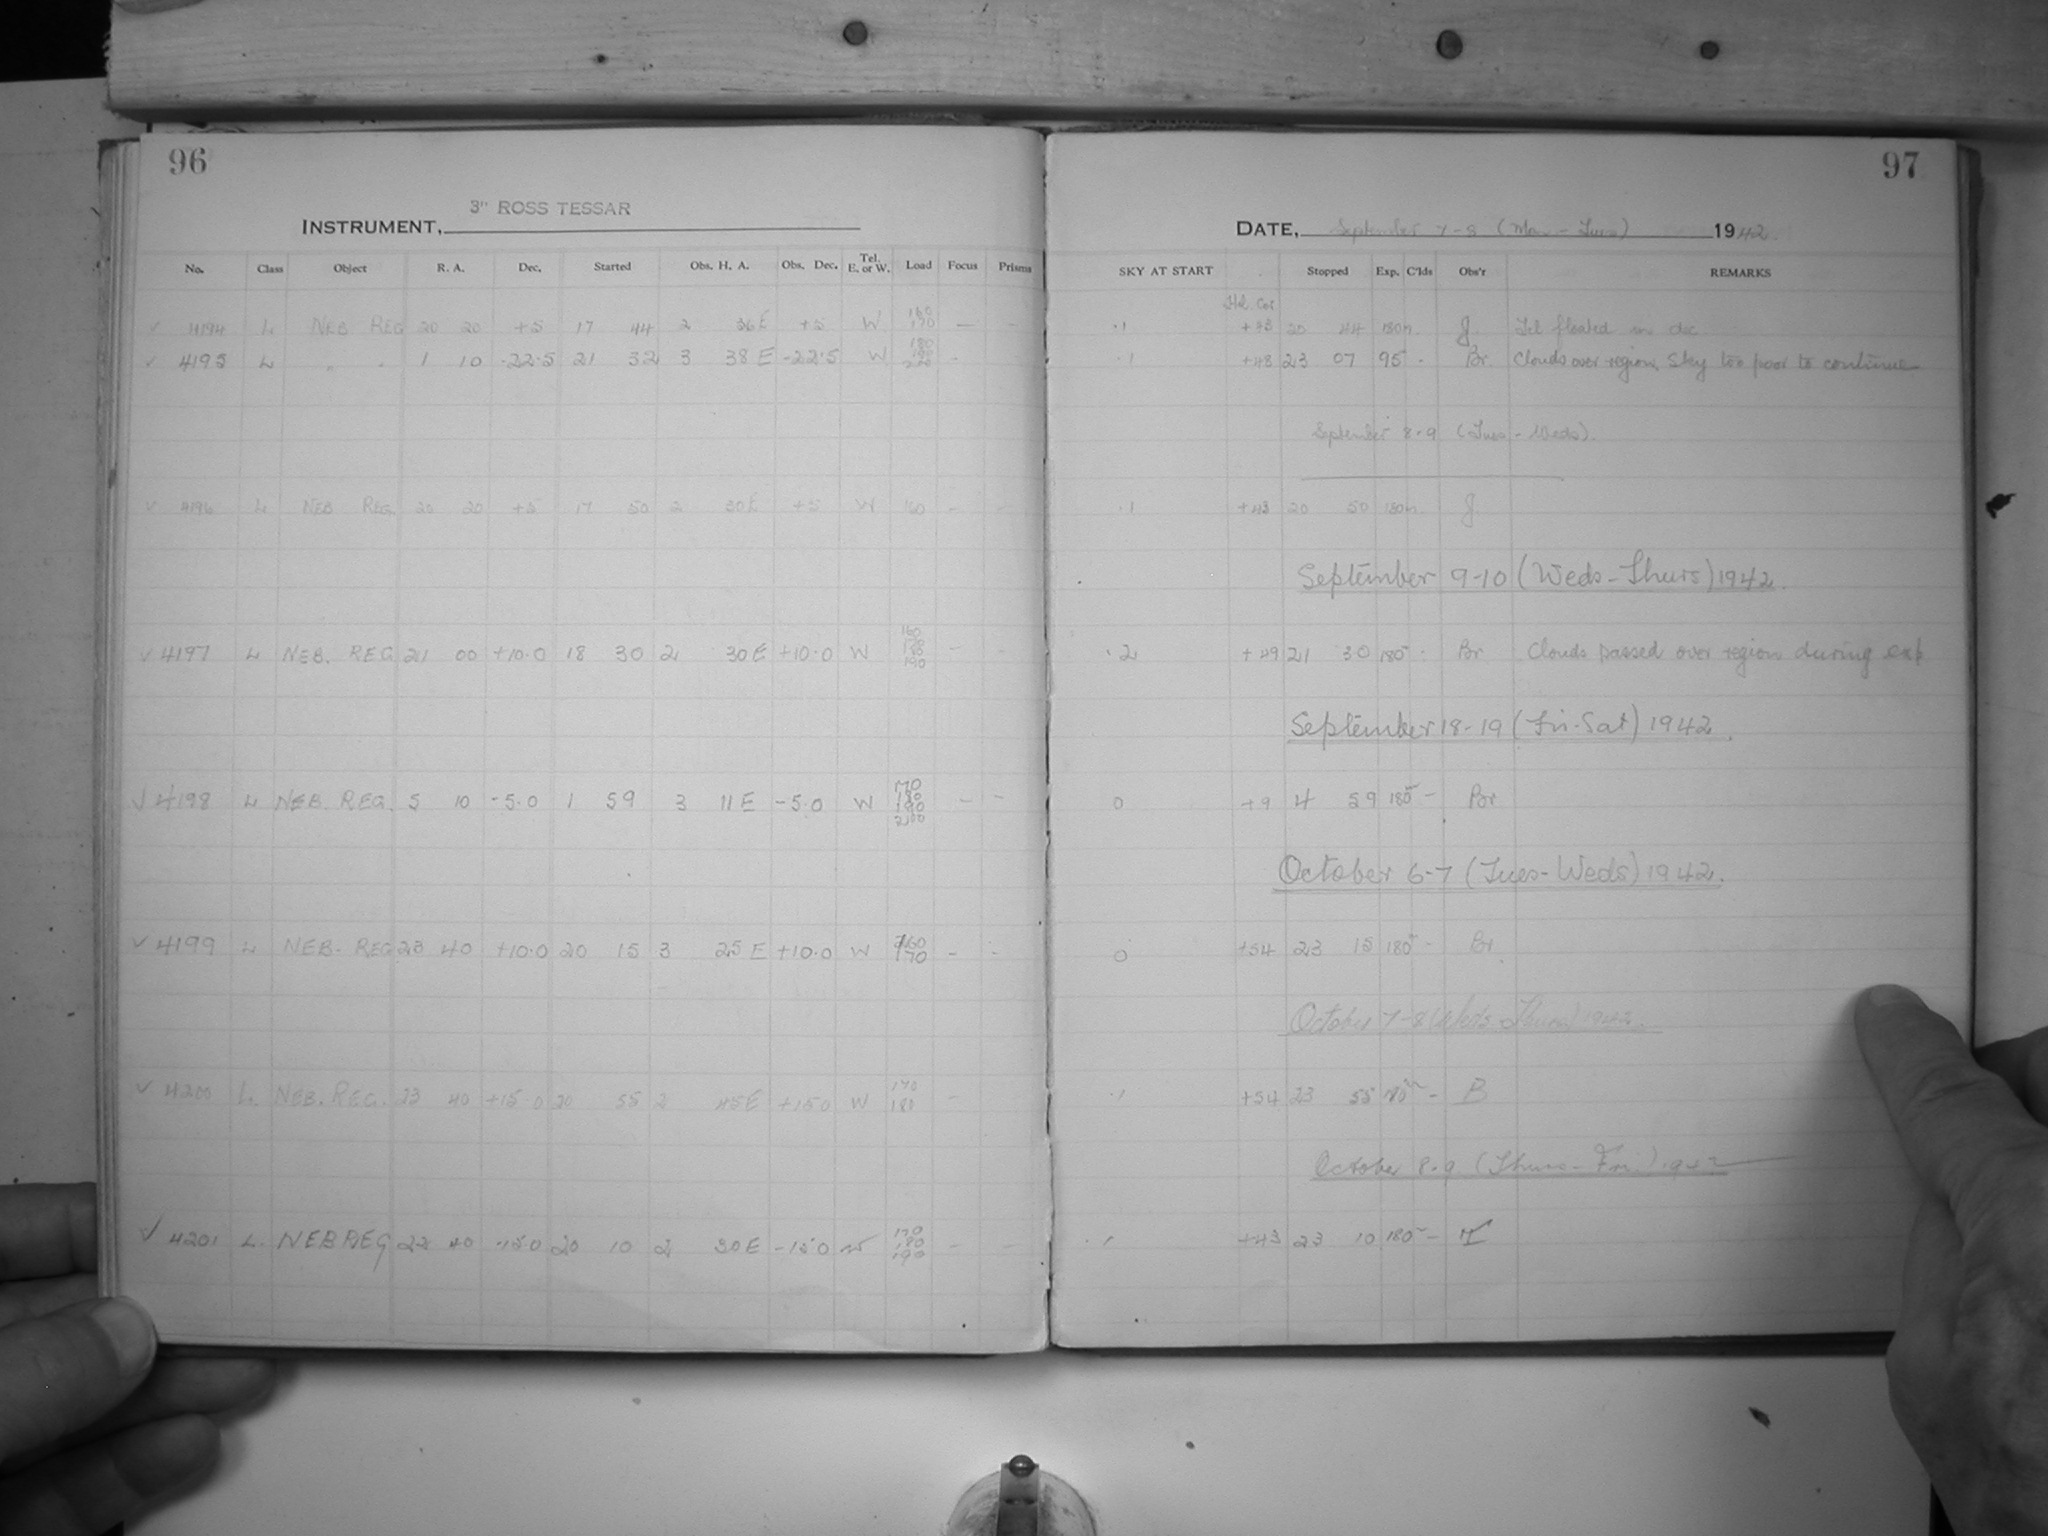 96
97
3" ROSS TESSAR
INSTRUMENT,
DATE, September 7-8 (Mon - Tues) 1942
No. Class Object R. A. Dec. Started Obs. H. A. Obs. Dec. Tel. E. or W. Load Focus Prisms SKY AT START Stopped Exp. C'lds Obs'r REMARKS
✓ 4194 L NEB REG 20 20 +5 17 44 2 36E +5 W 160 170 — - .1 +48 20 44 180m J. Tel floated in dec
✓ 4195 L " " 1 10 -22.5 21 32 3 38 E -22.5 W 180 190 200 - .1 +48 23 07 95 - Br. Clouds over region, Sky too poor to continue
September 8-9 (Tues - Weds).
✓ 4196 L NEB REG. 20 20 +5 17 50 2 30E +5 W 160 - - .1 +43 20 50 180m J.
September 9-10 (Weds-Thurs) 1942.
✓ 4197 L NEB. REG 21 00 +10.0 18 30 2 30 E +10.0 W 160 180 190 - - .2 +49 21 30 180 - Br Clouds passed over region during exp
September 18-19 (Fri-Sat) 1942.
✓ 4198 L NEB. REG. 5 10 -5.0 1 59 3 11 E -5.0 W 170 180 190 200 - - 0 +9 4 59 180 - Br
October 6-7 (Tues-Weds) 1942.
✓ 4199 L NEB. REG 23 40 +10.0 20 15 3 25 E +10.0 W 160 170 - - 0 +54 23 15 180 - Br
October 7-8 (Weds-Thurs) 1942.
✓ 4200 L. NEB. REG. 23 40 +15.0 20 55 2 45E +15.0 W 170 180 - .1 +54 23 55 180 - B
October 8-9 (Thurs-Fri.) 1942
✓ 4201 L. NEB REG 40 -15.0 20 10 2 30 E -15.0 W 170 180 190 - - .1 +43 23 10 180 -